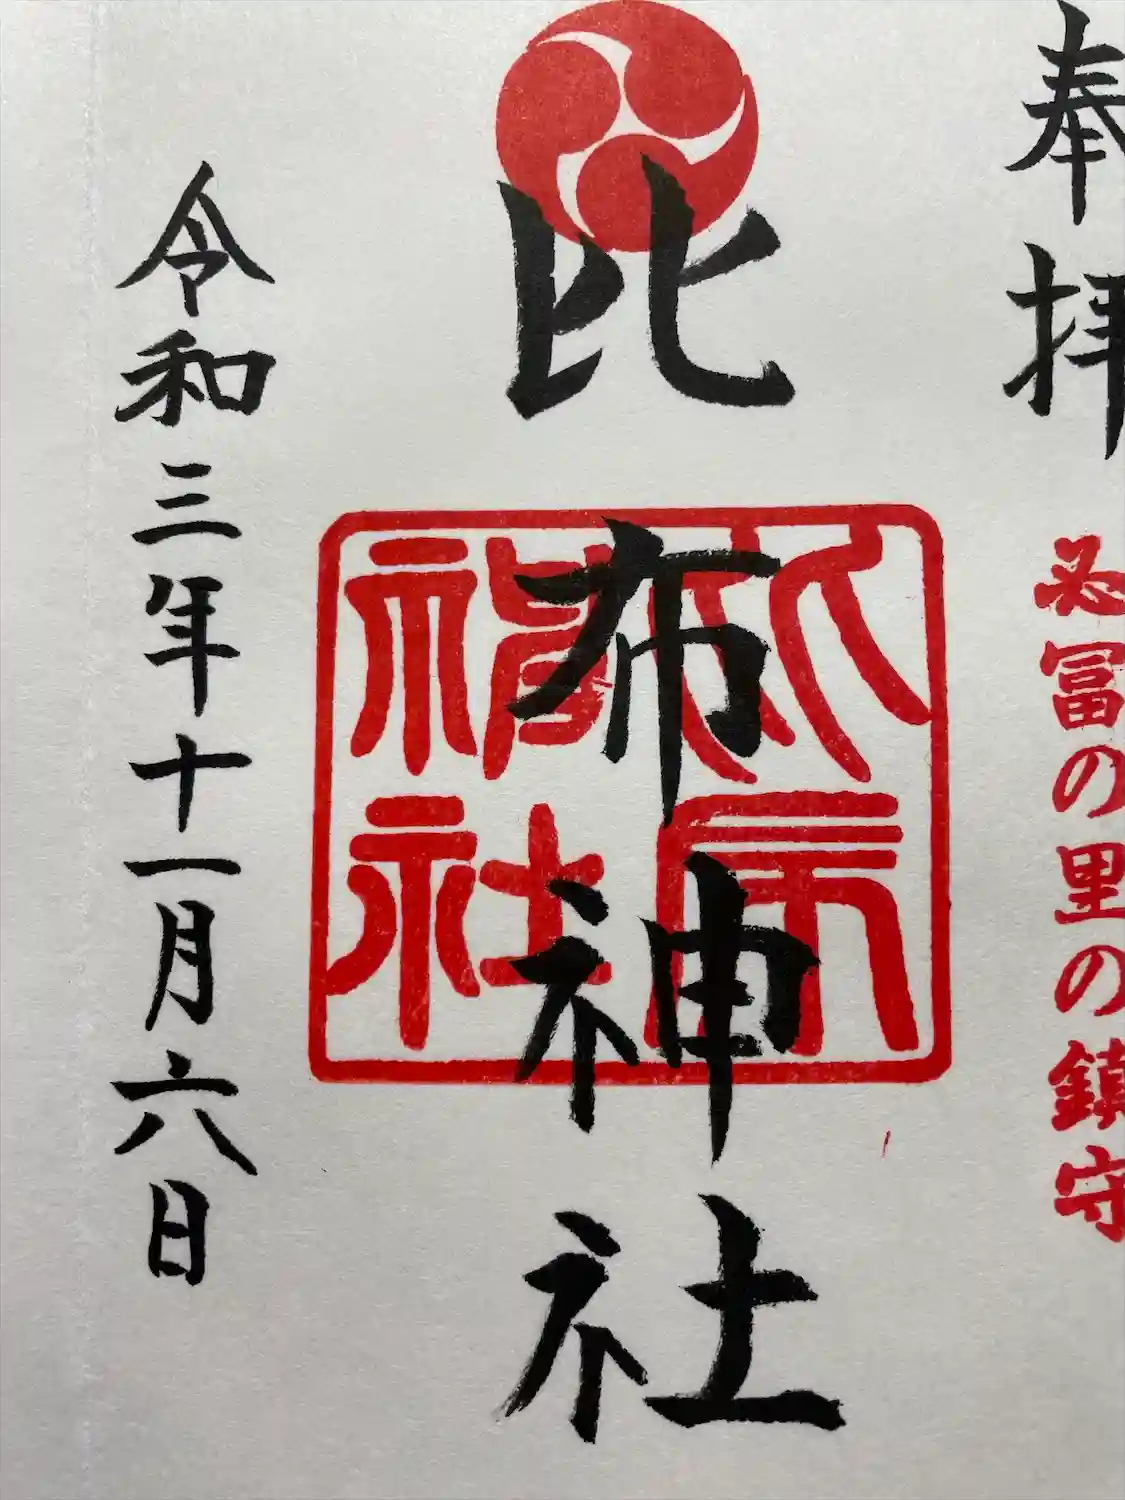 奉拝
必冨の里の鎮守
比布神社
比布神社
令和三年十一月六日